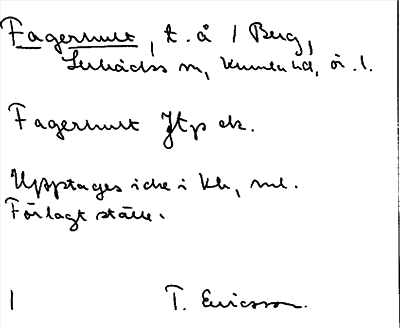 Fagerhult, t. å / Berg,
Lerbäcks sn, Kumla hd, ör. l.
Fagerhult Jtp ek.
Upptages icke i kk, ml.
Förlagt ställe.
| T. Ericsson.